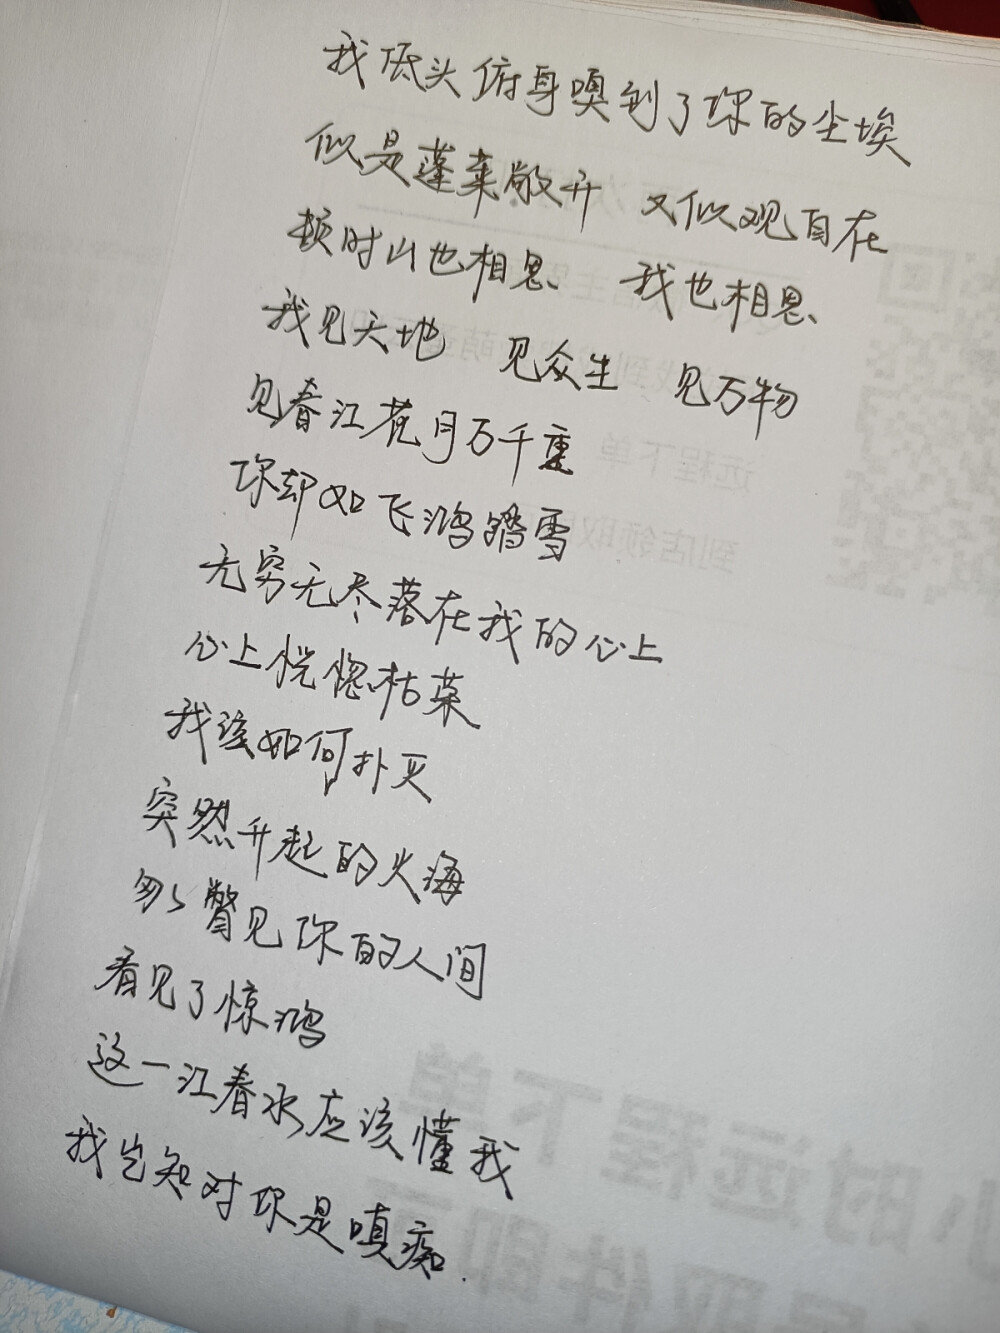 我低头俯身嗅到了你的尘埃
似是蓬莱敞开 又似观自在
顿时山也相思 我也相思
我见天地 见众生 见万物
见春江花月万千重
你却如飞鸿踏雪
无穷无尽落在我的心上
心上恍惚枯荣
我该如何扑灭
突然升起的火海
匆匆瞥见你的人间
看见了惊鸿
这一江春水应该懂我
我岂知对你是嗔痴.
远程下单
到店领取
小时远程下单
取件即可